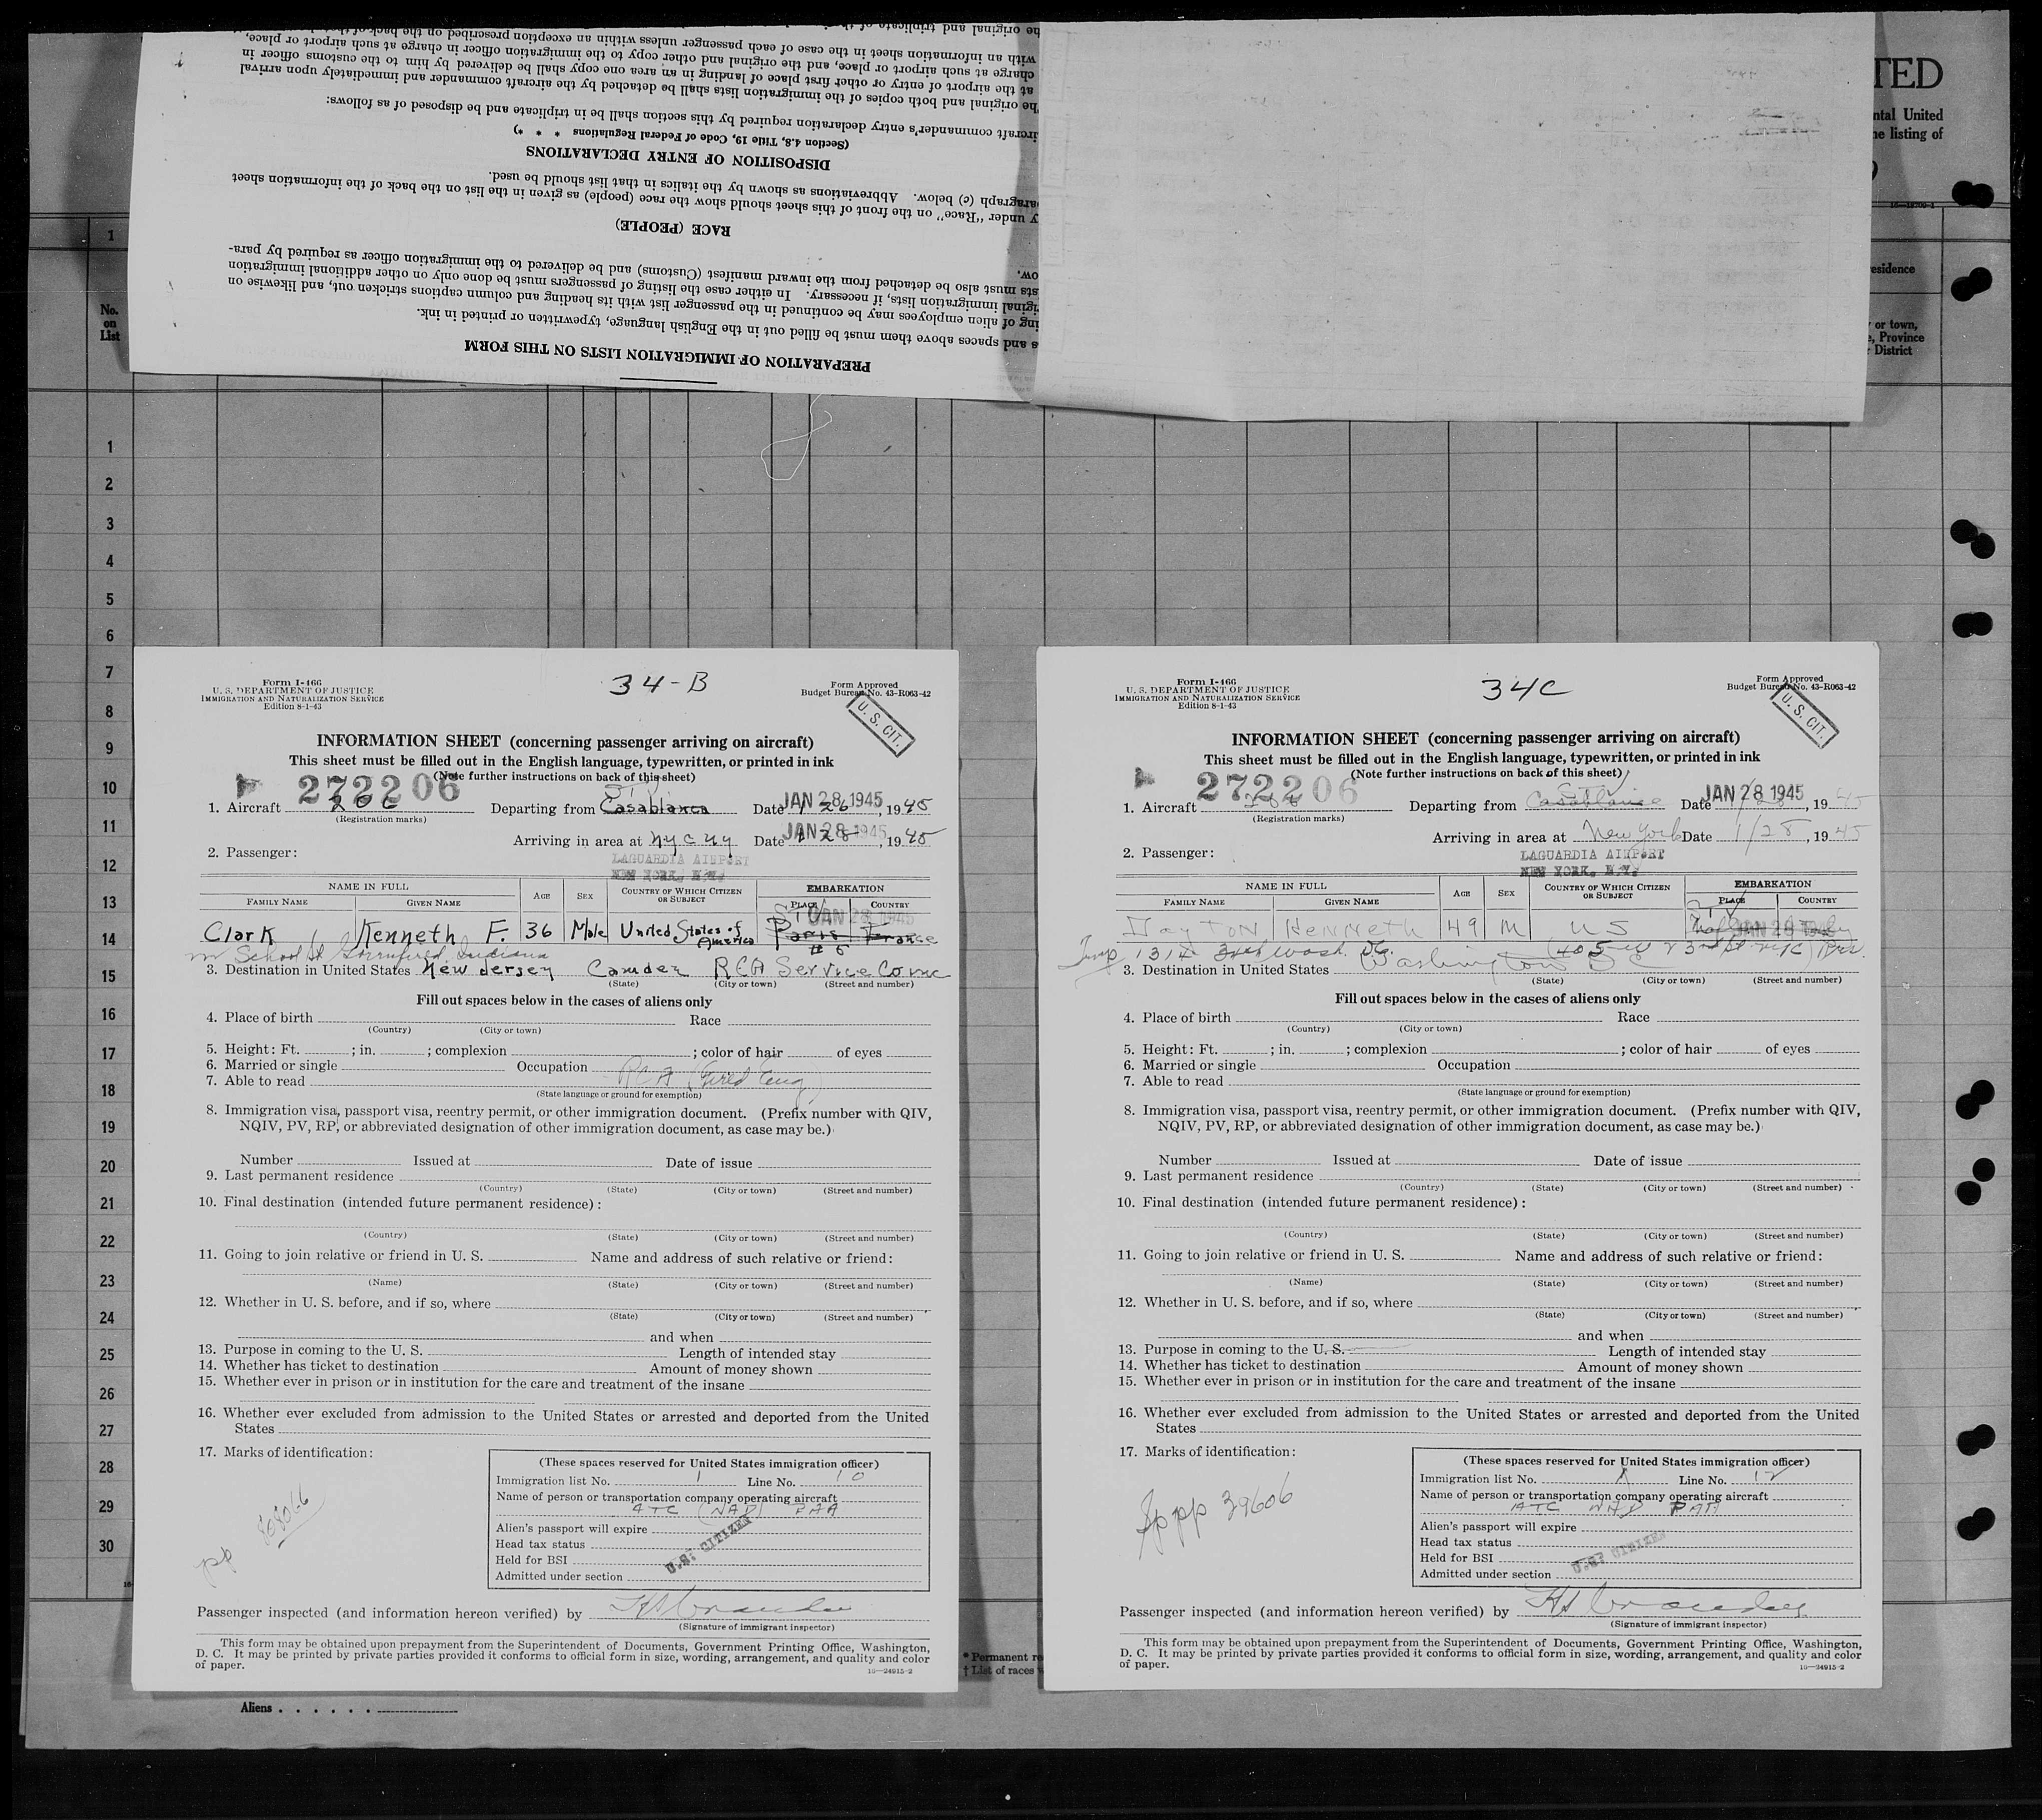 the original and triplicate of
with an information sheet in the case of each passenger unless within an exception prescribed on the back of
charge at such airport or place, and the original and other copy to the immigration officer in charge at such airport or place,
at the airport of entry or other first place of landing in an area one copy shall be delivered by him to the customs officer in
The original and both copies of the immigration lists shall be detached by the aircraft commander and immediately upon arrival
ircraft commander's entry declaration required by this section shall be in triplicate and be disposed of as follows:
(Section 4.8, Title 19, Code of Federal Regulations * * *)
DISPOSITION OF ENTRY DECLARATIONS
aragraph (c) below. Abbreviations as shown by the italics in that list should be used.
y under "Race" on the front of this sheet should show the race (people) as given in the list on the back of the information sheet
RACE (PEOPLE)
ow.
sts must also be detached from the inward manifest (Customs) and be delivered to the immigration officer as required by para-
iginal immigration lists, if necessary. In either case the listing of passengers must be done only on other additional immigration
ing of alien employees may be continued in the passenger list with its heading and column captions stricken out, and likewise on
s and spaces above them must be filled out in the English language, typewritten or printed in ink.
PREPARATION OF IMMIGRATION LISTS ON THIS FORM
TED
ntal United
he listing of
1
esidence
No.
on
List
or town,
, Province
District
1
2
3
4
5
6
7
8
9
10
11
12
13
14
15
16
17
18
19
20
21
22
23
24
25
26
27
28
29
30
Form I-466
U. S. DEPARTMENT OF JUSTICE
IMMIGRATION AND NATURALIZATION SERVICE
Edition 8-1-43
34-B
Form Approved
Budget Bureau No. 43-R063-42
U. S. CIT.
INFORMATION SHEET (concerning passenger arriving on aircraft)
This sheet must be filled out in the English language, typewritten, or printed in ink
(Note further instructions on back of this sheet)
272206
1. Aircraft 206 Departing from Casablanca Date JAN 28 1945 1 26, 1945
(Registration marks)
Arriving in area at nyc ny Date JAN 28 1945 1 28, 1945
2. Passenger:
LAGUARDIA AIRPORT
NEW YORK, N.Y.
NAME IN FULL AGE SEX COUNTRY OF WHICH CITIZEN OR SUBJECT EMBARKATION
FAMILY NAME GIVEN NAME PLACE COUNTRY
JAN 28 1945
Clark Kenneth F. 36 Male United States of America Paris France
School St Indiana
3. Destination in United States New Jersey Camden RCA Service Co Inc
(State) (City or town) (Street and number)
Fill out spaces below in the cases of aliens only
4. Place of birth Race
(Country) (City or town)
5. Height: Ft. ; in. ; complexion ; color of hair of eyes
6. Married or single Occupation RCA (Field Eng)
7. Able to read
(State language or ground for exemption)
8. Immigration visa, passport visa, reentry permit, or other immigration document. (Prefix number with QIV,
NQIV, PV, RP, or abbreviated designation of other immigration document, as case may be.)
Number Issued at Date of issue
9. Last permanent residence
(Country) (State) (City or town) (Street and number)
10. Final destination (intended future permanent residence):
(Country) (State) (City or town) (Street and number)
11. Going to join relative or friend in U. S. Name and address of such relative or friend:
(Name) (State) (City or town) (Street and number)
12. Whether in U. S. before, and if so, where
(State) (City or town) (Street and number)
and when
13. Purpose in coming to the U. S. Length of intended stay
14. Whether has ticket to destination Amount of money shown
15. Whether ever in prison or in institution for the care and treatment of the insane
16. Whether ever excluded from admission to the United States or arrested and deported from the United
States
17. Marks of identification:
pp
(These spaces reserved for United States immigration officer)
Immigration list No. 1 Line No. 10
Name of person or transportation company operating aircraft
ATC (NAD) PAA
Alien's passport will expire
Head tax status
Held for BSI
Admitted under section
U.S. CITIZEN
Passenger inspected (and information hereon verified) by
(Signature of immigrant inspector)
This form may be obtained upon prepayment from the Superintendent of Documents, Government Printing Office, Washington,
D. C. It may be printed by private parties provided it conforms to official form in size, wording, arrangement, and quality and color
of paper.
16—24915-2
Form I-466
U. S. DEPARTMENT OF JUSTICE
IMMIGRATION AND NATURALIZATION SERVICE
Edition 8-1-43
34C
Form Approved
Budget Bureau No. 43-R063-42
U. S. CIT.
INFORMATION SHEET (concerning passenger arriving on aircraft)
This sheet must be filled out in the English language, typewritten, or printed in ink
(Note further instructions on back of this sheet)
272206
1. Aircraft Departing from Casablanca Date JAN 28 1945, 1945
(Registration marks)
Arriving in area at New York Date 1/28, 1945
2. Passenger:
LAGUARDIA AIRPORT
NEW YORK, N.Y.
NAME IN FULL AGE SEX COUNTRY OF WHICH CITIZEN OR SUBJECT EMBARKATION
FAMILY NAME GIVEN NAME PLACE COUNTRY
Dayton Kenneth 49 M US JAN 28 1945
Temp 1314 34th Wash. DC. (405 W 23rd St NYC)
3. Destination in United States Washington DC
(State) (City or town) (Street and number)
Fill out spaces below in the cases of aliens only
4. Place of birth Race
(Country) (City or town)
5. Height: Ft. ; in. ; complexion ; color of hair of eyes
6. Married or single Occupation
7. Able to read
(State language or ground for exemption)
8. Immigration visa, passport visa, reentry permit, or other immigration document. (Prefix number with QIV,
NQIV, PV, RP, or abbreviated designation of other immigration document, as case may be.)
Number Issued at Date of issue
9. Last permanent residence
(Country) (State) (City or town) (Street and number)
10. Final destination (intended future permanent residence):
(Country) (State) (City or town) (Street and number)
11. Going to join relative or friend in U. S. Name and address of such relative or friend:
(Name) (State) (City or town) (Street and number)
12. Whether in U. S. before, and if so, where
(State) (City or town) (Street and number)
and when
13. Purpose in coming to the U. S. Length of intended stay
14. Whether has ticket to destination Amount of money shown
15. Whether ever in prison or in institution for the care and treatment of the insane
16. Whether ever excluded from admission to the United States or arrested and deported from the United
States
17. Marks of identification:
Sp pp 39606
(These spaces reserved for United States immigration officer)
Immigration list No. 1 Line No. 12
Name of person or transportation company operating aircraft
ATC NAD PAA
Alien's passport will expire
Head tax status
Held for BSI
Admitted under section
U.S. CITIZEN
Passenger inspected (and information hereon verified) by
(Signature of immigrant inspector)
This form may be obtained upon prepayment from the Superintendent of Documents, Government Printing Office, Washington,
D. C. It may be printed by private parties provided it conforms to official form in size, wording, arrangement, and quality and color
of paper.
16—24915-2
* Permanent re
† List of races
Aliens . . . . . .